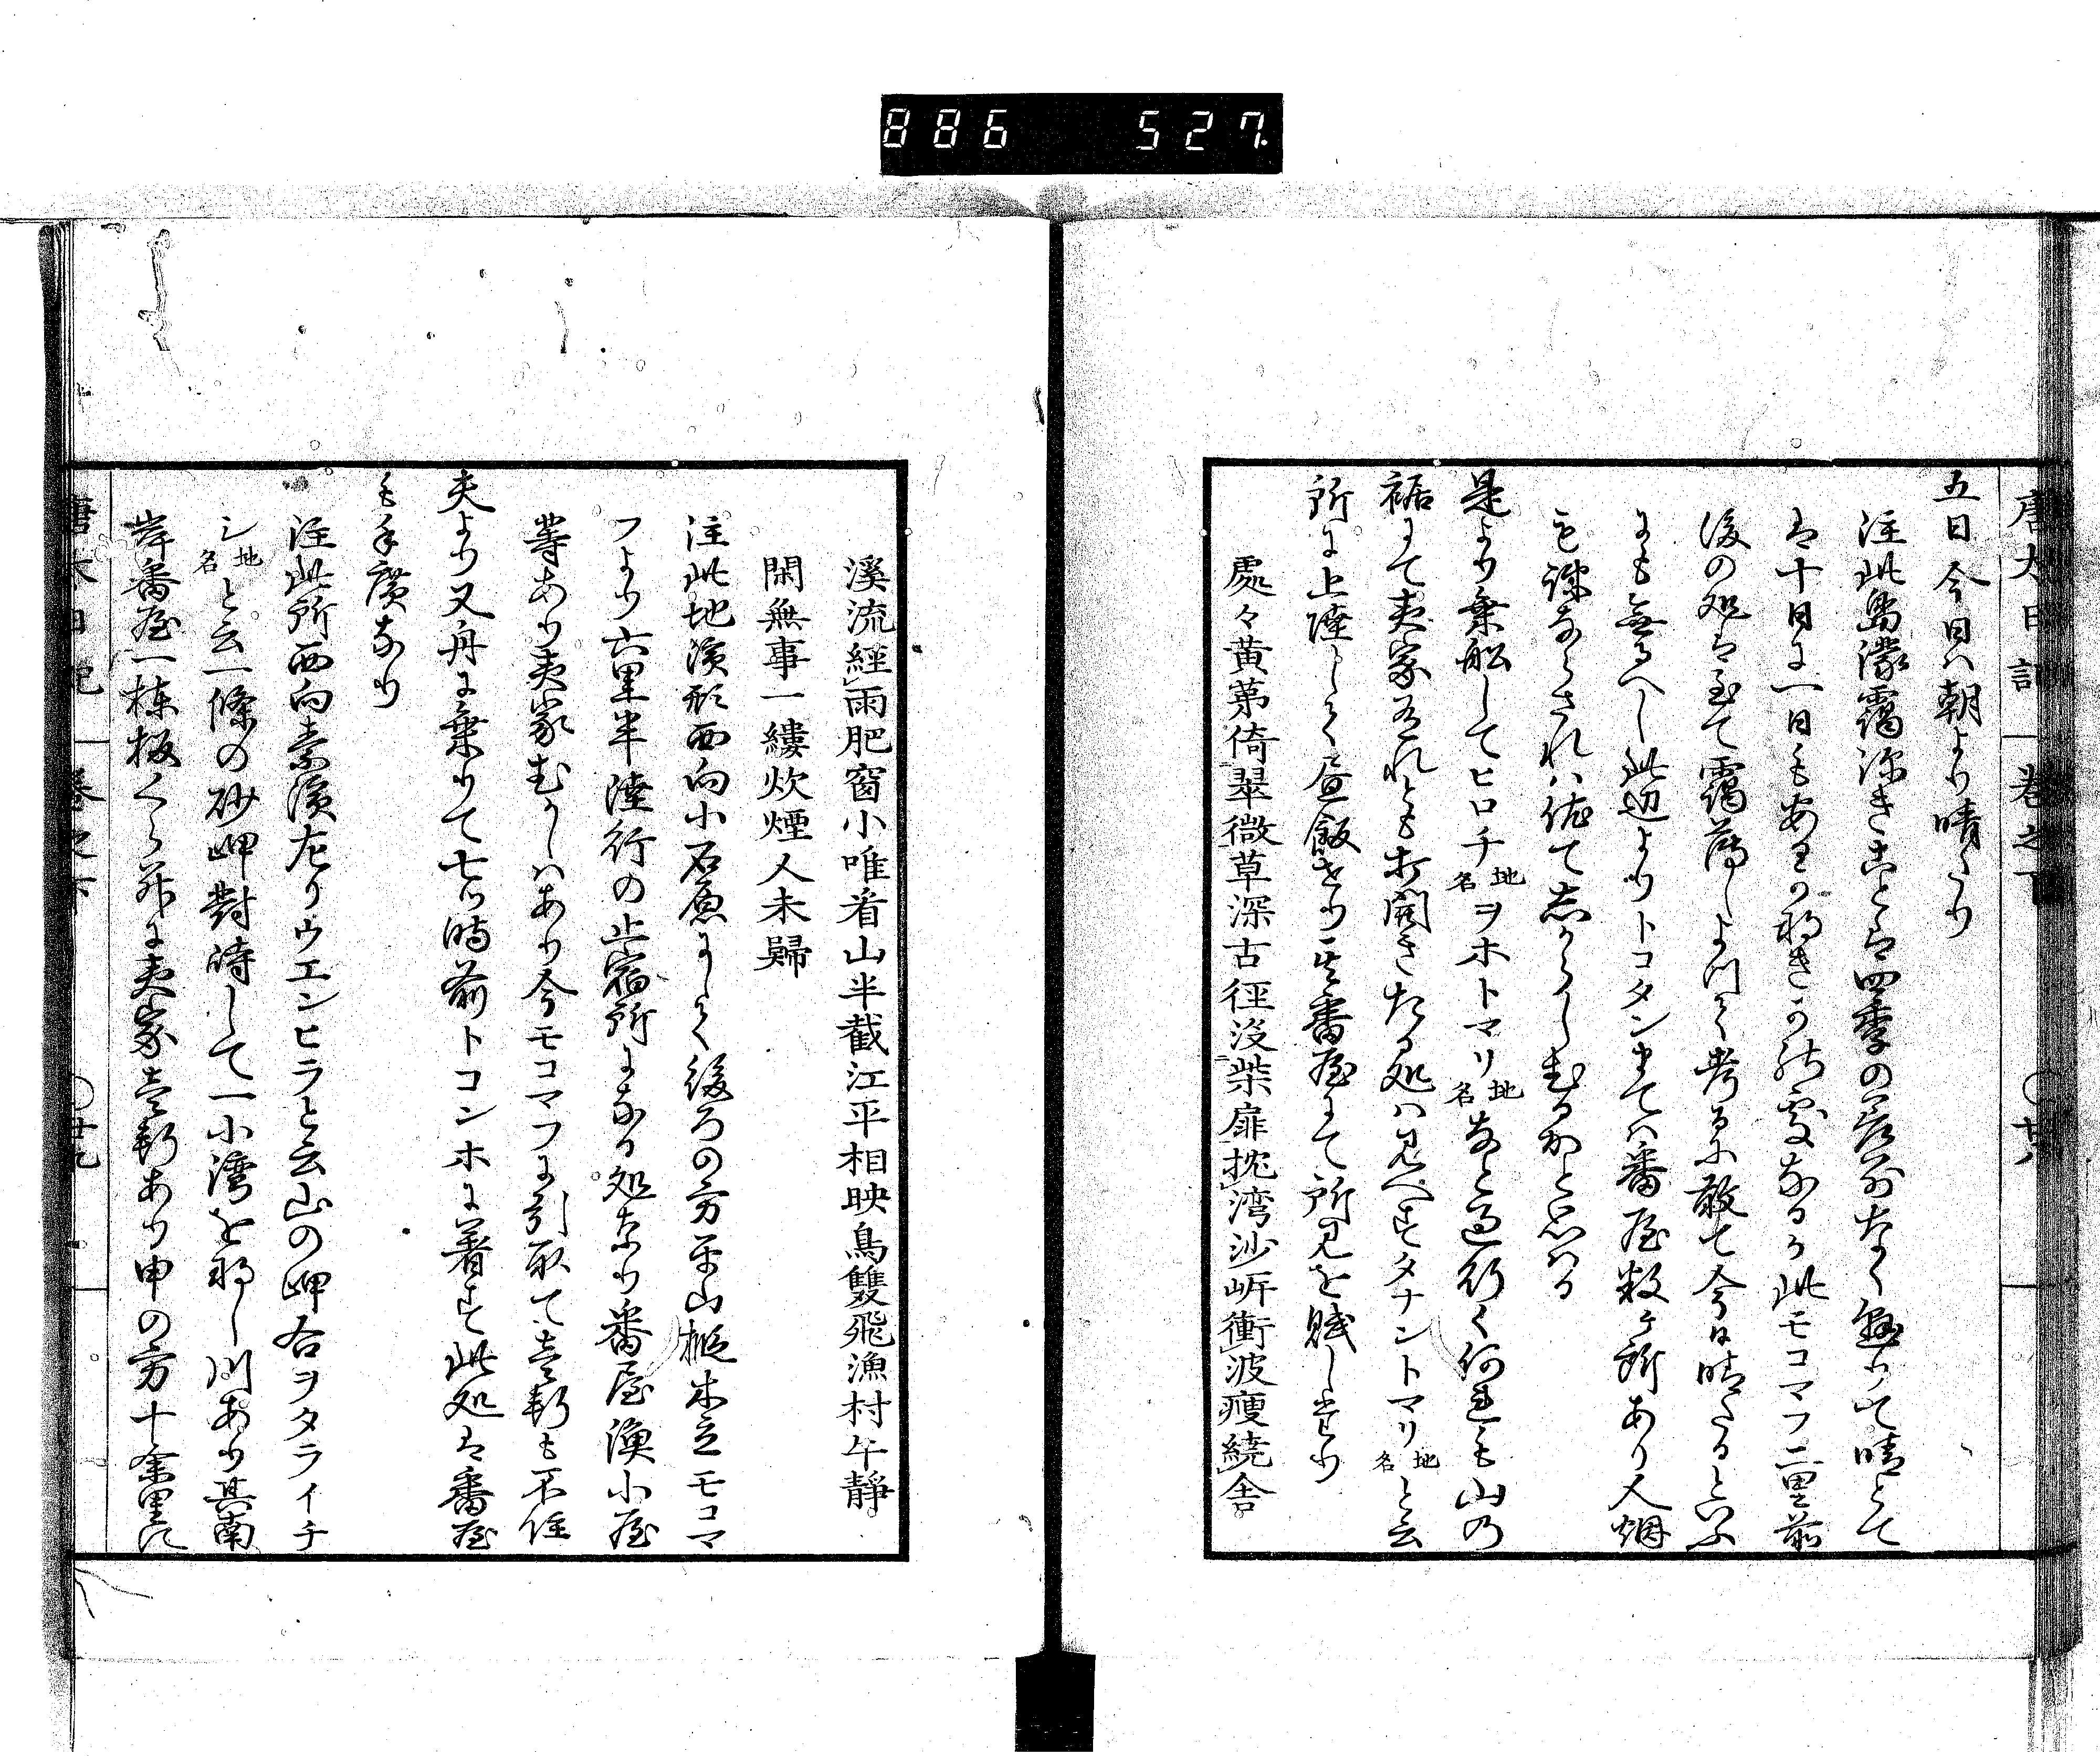 886 527
唐太日記 巻之下 〇廿八
五日今日ハ朝より晴たり
注此島濛靄深きことは四季の差別なく絶りて晴とて
は十日に一日もあるか稀きの所處なるか此モコマフ二里前
後の処は至て靄薄しよつて考るに敢て今日晴たるといふ
にも無るへし此辺よりトコタンまてハ番屋数ヶ所あり人烟
も疎ならされハ依て志からしむるかと思はる
是より乗船してヒロチ地名ヲホトマリ地名なと過行く何連も山乃
裾にて夷家あれとも打開きたる処ハ見へすタナントマリ地名と云
所に上陸して昼飯せり其番屋にて所見を賦し出せり
處々黄茅倚翠微草深古徑沒柴扉枕湾沙岍衝波痩繞舎
溪流經雨肥窗小唯看山半截江平相映鳥雙飛漁村午靜
閑無事一縷炊煙人未歸
注此地濱形西向小石原にして後ろの方平山椴木立モコマ
フより六里半陸行の止宿所になる処なり番屋漁小屋
等あり夷家むかしハあり今モコマフに引取て壱軒も不住
夫より又舟に乗りて七ツ時前トコンホに着す此処は番屋
も手廣なり
注此所西向素濱左りウエンヒラと云山の岬右ヲタライチ
シ地名と云一條の砂岬對峙して一小湾を形し川あり其南
岸番屋一棟板くら并に夷家壱軒あり申の方十余里に
唐太日記 巻之下 〇廿九